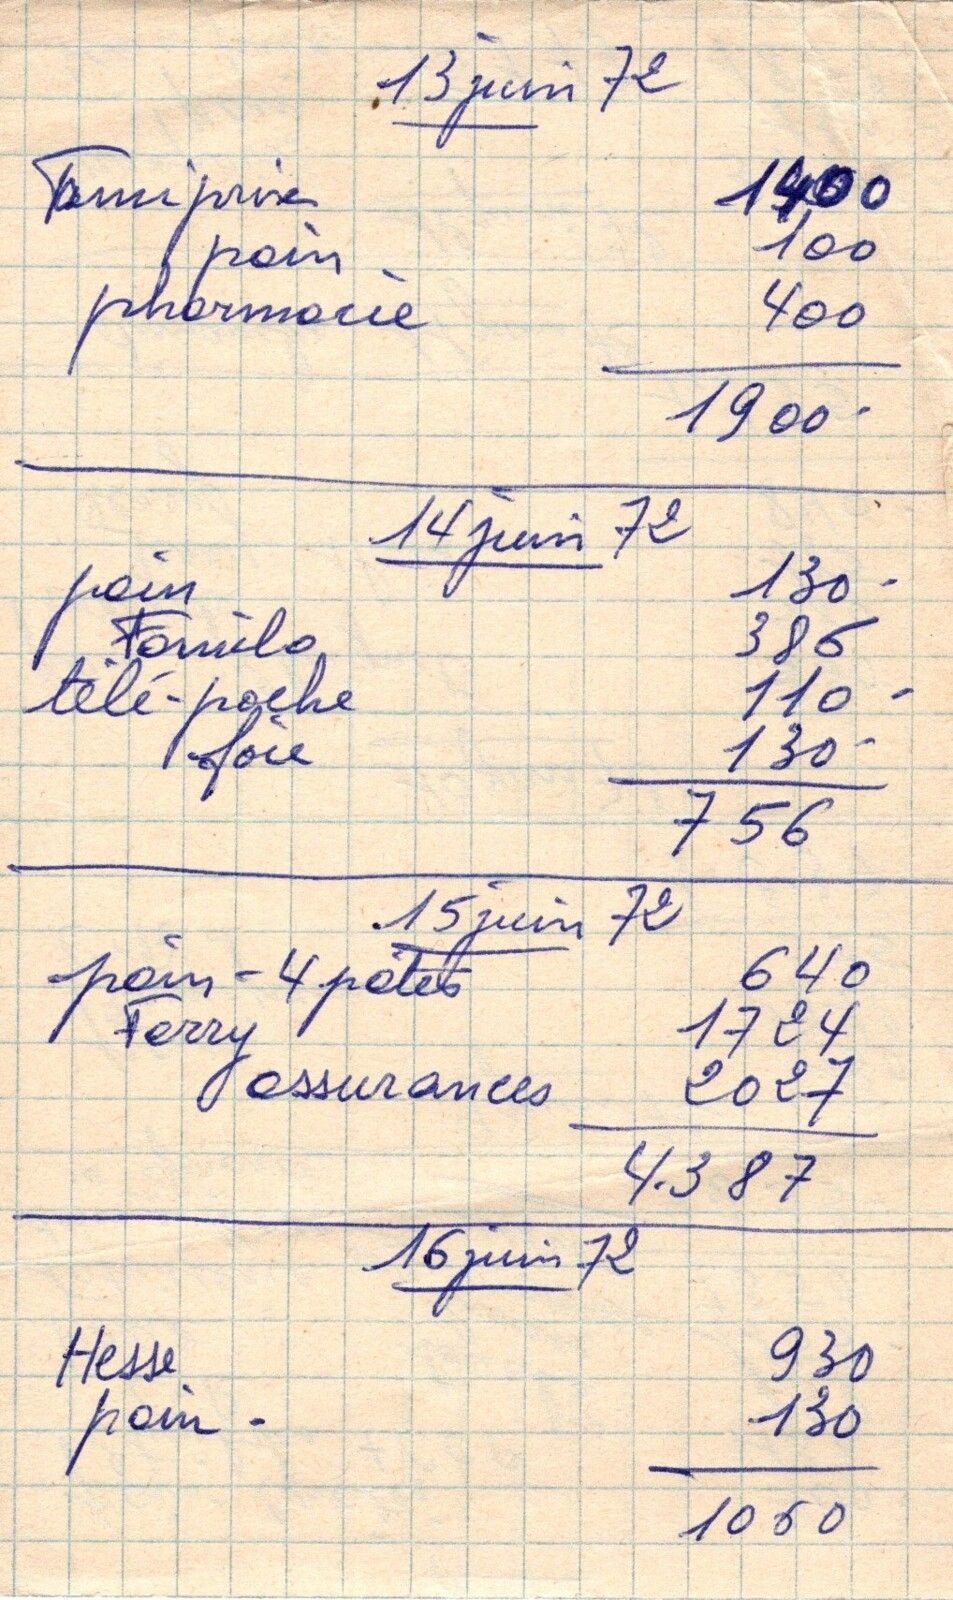 13 juin 72
Famiprix 1400
pain 100
pharmacie 400
1900-
14 juin 72
pain 130-
Famila 386
télé-poche 110-
foie 130-
756
15 juin 72
pain - 4 pâtes 640
Ferry 1724
assurances 2027
4.387
16 juin 72
Hesse 930
pain - 130
1060